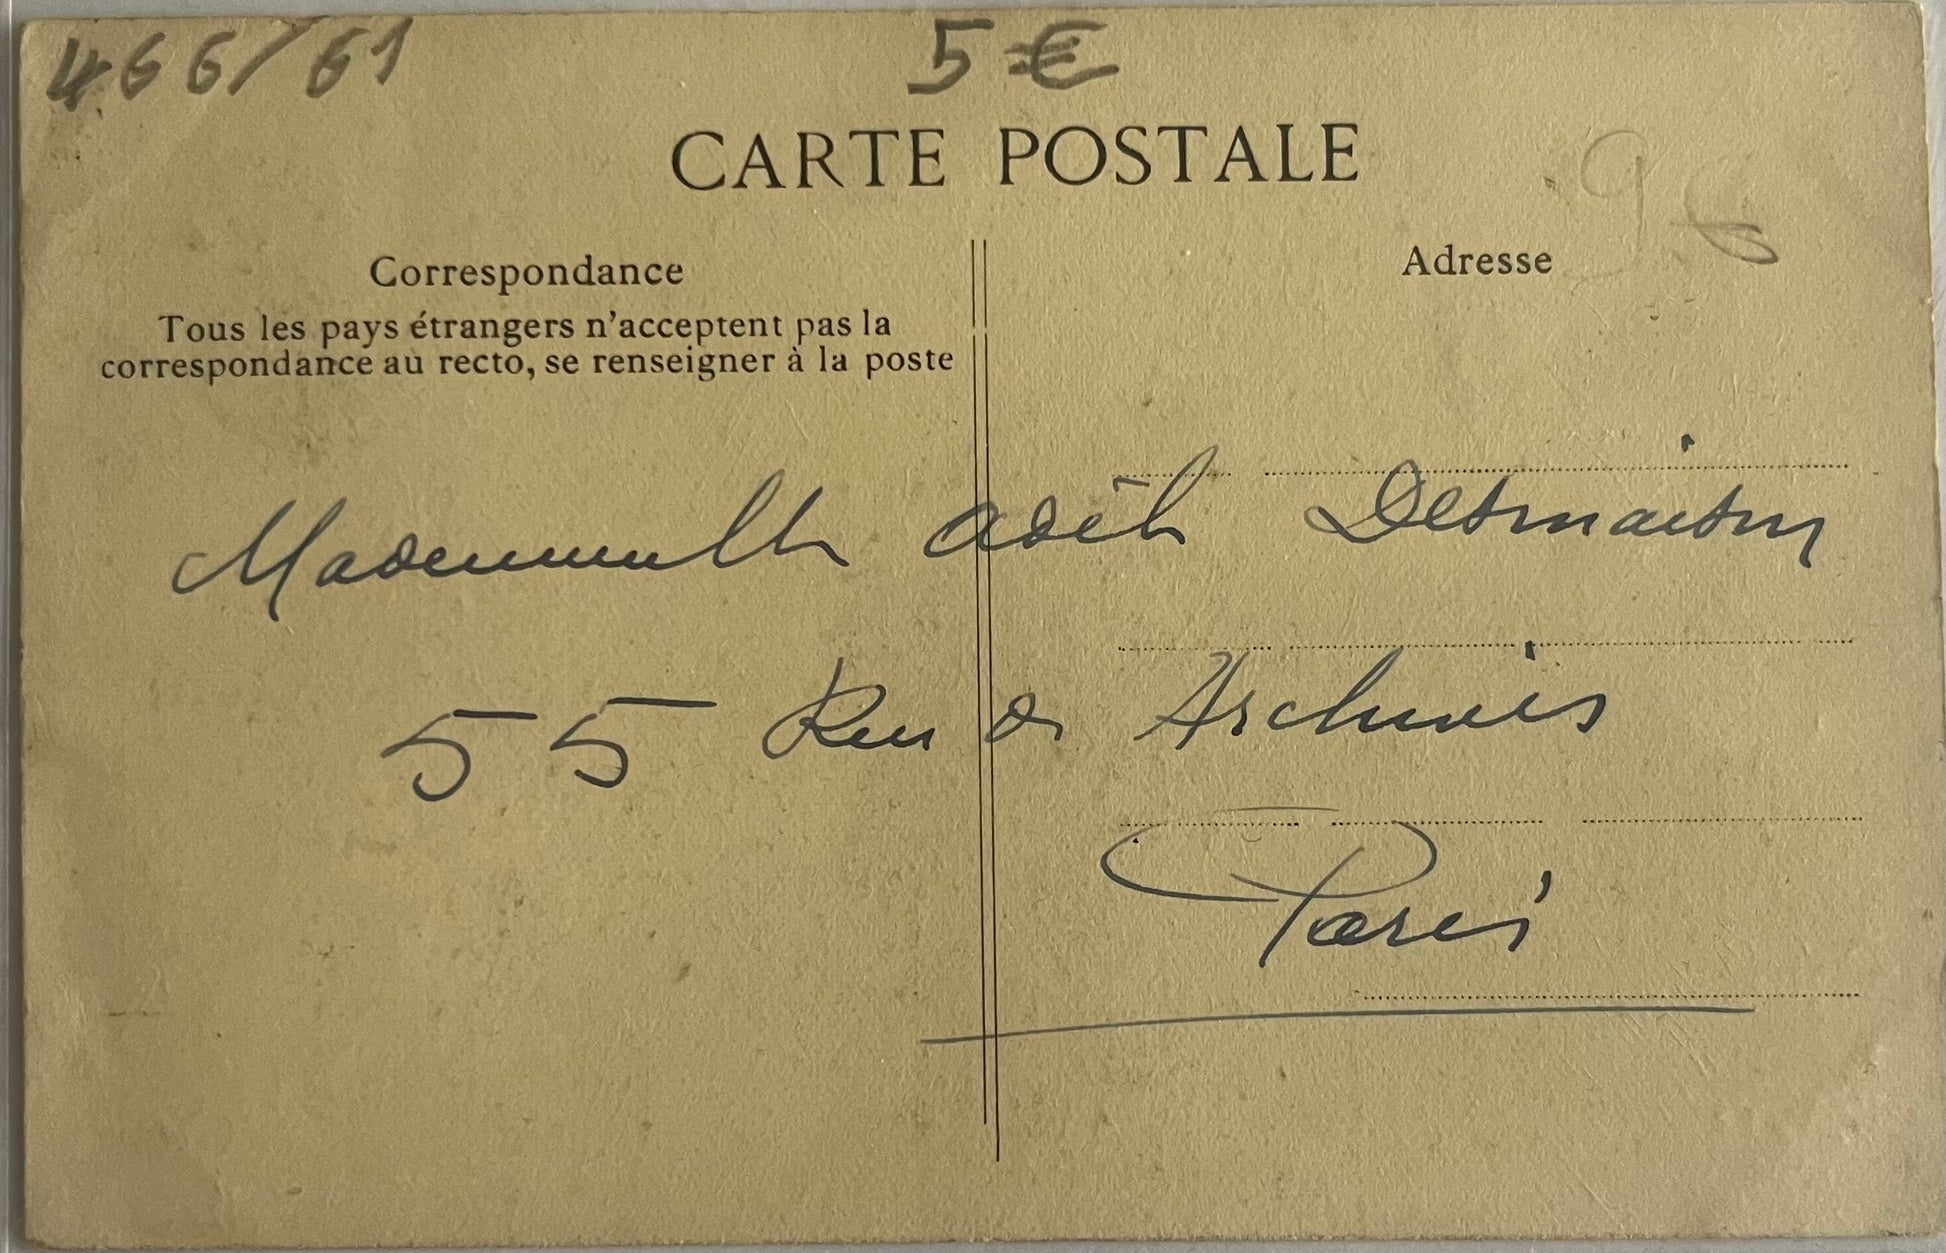 466/61 5€
CARTE POSTALE
Correspondance
Adresse
Tous les pays étrangers n'acceptent pas la
correspondance au recto, se renseigner à la poste
Mademoiselle Adèle Desmaison
55 Rue des Archives
Paris